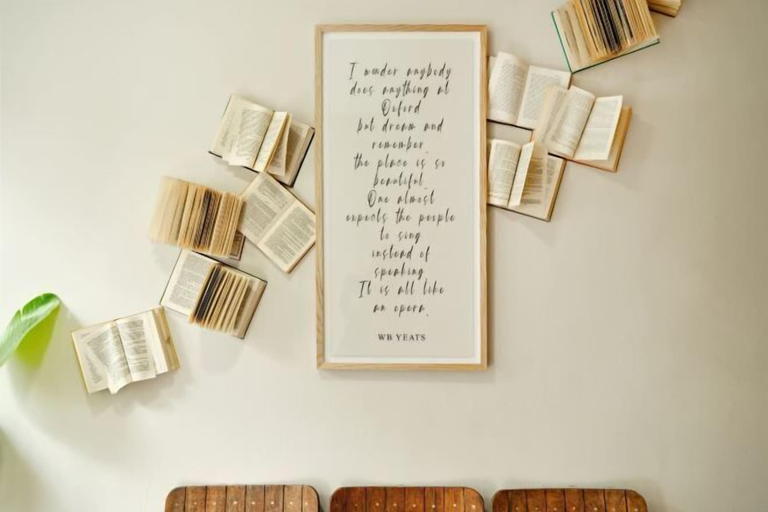 I wonder anybody
does anything at
Oxford
but dream and
remember.
the place is so
beautiful.
One almost
expects the people
to sing
instead of
speaking.
It is all like
an opera.
WB YEATS